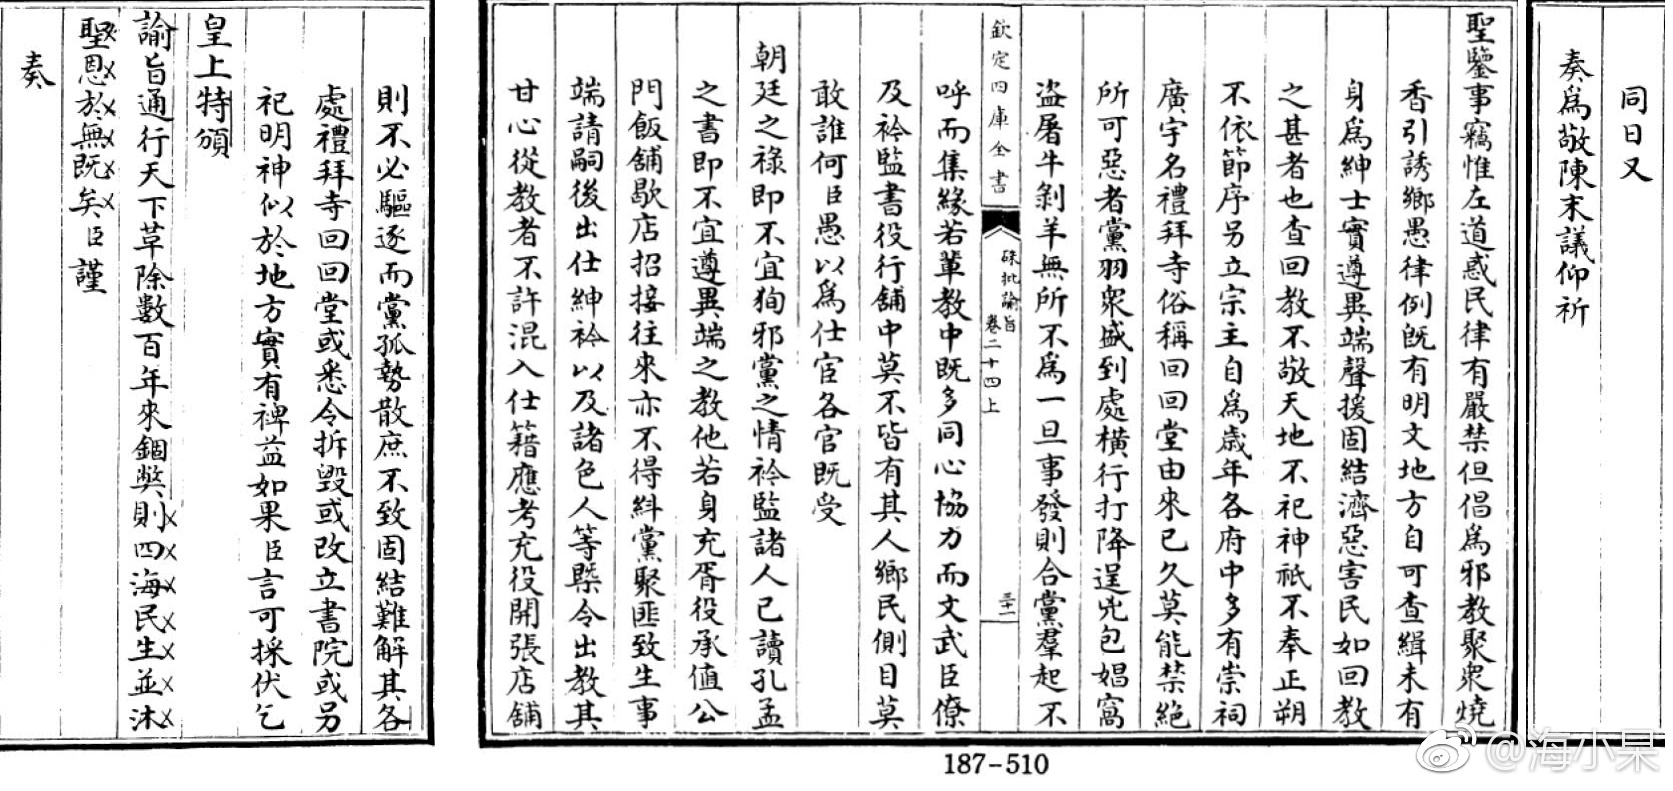 同日又
奏爲敬陳末議仰祈
聖鑒事竊惟左道惑民律有嚴禁但倡爲邪教聚衆燒
香引誘鄉愚律例既有明文地方自可查緝未有
身爲紳士實遵異端聲援固結濟惡害民如回教
之甚者也查回教不敬天地不祀神祇不奉正朔
不依節序另立宗主自爲歲年各府中多有崇祠
廣宇名禮拜寺俗稱回回堂由來已久莫能禁絕
所可惡者黨羽衆盛到處橫行打降逞兇包娼窩
盜屠牛剝羊無所不爲一旦事發則合黨羣起不
欽定四庫全書
硃批諭旨
卷二十四上
三十一
呼而集緣若輩教中既多同心協力而文武臣僚
及衿監書役行舖中莫不皆有其人鄉民側目莫
敢誰何臣愚以爲仕宦各官既受
朝廷之祿即不宜狥邪黨之情衿監諸人已讀孔孟
之書即不宜遵異端之教他若身充胥役承值公
門飯舖歇店招接往來亦不得糾黨聚匪致生事
端請嗣後出仕紳衿以及諸色人等槩令出教其
甘心從教者不許混入仕籍應考充役開張店舖
則不必驅逐而黨孤勢散庶不致固結難解其各
處禮拜寺回回堂或悉令拆毀或改立書院或另
祀明神似於地方實有裨益如果臣言可採伏乞
皇上特頒
諭旨通行天下革除數百年來錮獘則四海民生並沐
聖恩於無既矣臣謹
奏
187-510
@海小杲